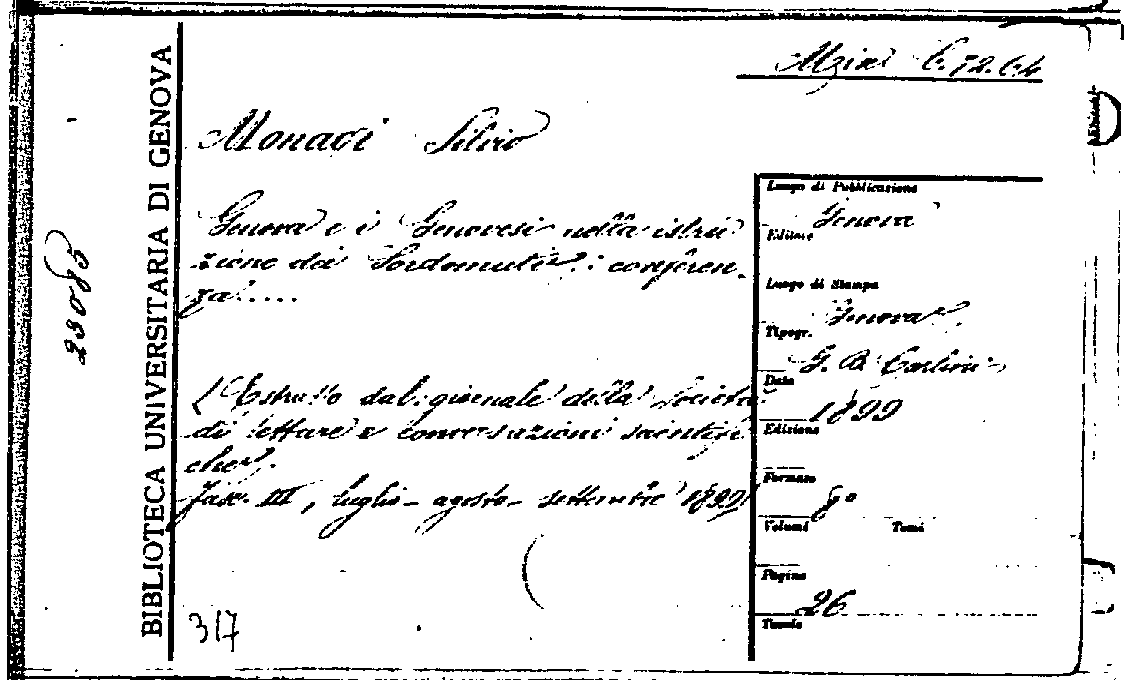 BIBLIOTECA UNIVERSITARIA DI GENOVA
23085
Monaci Silvio
Genova e i Genovesi nella istru
zione dei Sordomuti: conferen-
za....
(Estratto dal giornale della Società
di letture e conversazioni scientifi
che.
Fasc. III, luglio - agosto - settembre 1899)
317
Luogo di Pubblicazione
Genova
Editore
Luogo di Stampa
Genova
Tipogr.
G. B. Carlini
Data
1899
Edizione
Formato
8°
Volumi Tomi
Pagine
26
Tavole